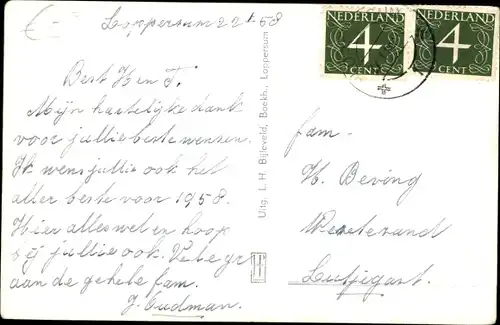 Loppersum 22 1 58
Best H en T.
Mijn hartelijke dank
voor jullie beste wensen.
Ik wens jullie ook het
aller beste voor 1958.
Hier alles wel en hoop
bij jullie ook. Vele gr
aan de gehele fam.
J. Oudman.
Uitg. L. H. Bijleveld, Boekh., Loppersum
NEDERLAND
4
CENT
NEDERLAND
4
CENT
fam.
H. Beving
Westerzand
Lutjegast.